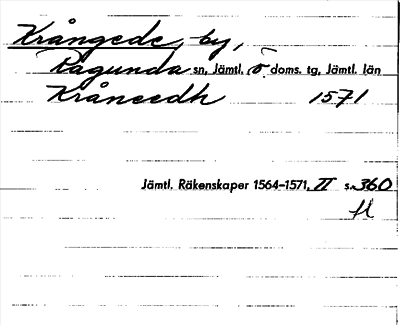 Krångede, by,
Ragunda sn, Jämtl. ö doms. tg, Jämtl. län
Kråneedh 1571
Jämtl. Räkenskaper 1564–1571, II s. 360
fl